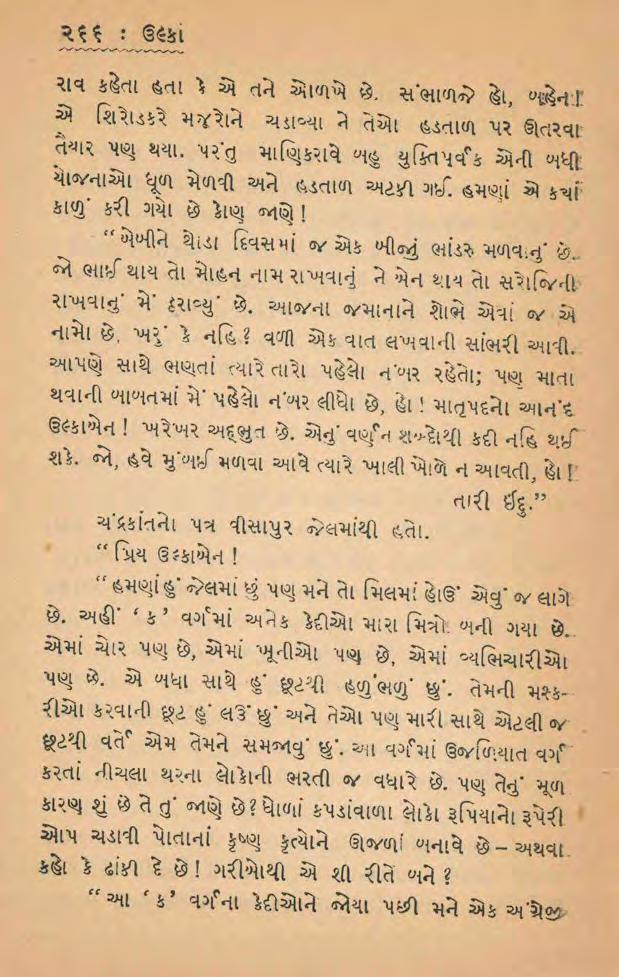 ૨૬૬ : ઉલ્કા
રાવ કહેતા હતા કે એ તને ઓળખે છે. સંભાળજે હો, બહેન!
એ શિરોડકરે મજૂરોને ચડાવ્યા ને તેઓ હડતાળ પર ઊતરવા
તૈયાર પણ થયા. પરંતુ માણિકરાવે બહુ યુક્તિપૂર્વક એની બધી
યોજનાઓ ધૂળ મેળવી અને હડતાળ અટકી ગઈ. હમણાં એ ક્યાં
કાળું કરી ગયો છે કોણ જાણે!
“બેબીને થોડા દિવસમાં જ એક બીજું ભાંડરુ મળવાનું છે.
જો ભાઈ થાય તો મોહન નામ રાખવાનું ને બેન થાય તો સરોજિની
રાખવાનું મેં ઠરાવ્યું છે. આજના જમાનાને શોભે એવાં જ એ
નામો છે, ખરું કે નહિ? વળી એક વાત લખવાની સાંભરી આવી.
આપણે સાથે ભણતાં ત્યારે તારો પહેલો નંબર રહેતો; પણ માતા
થવાની બાબતમાં મેં પહેલો નંબર લીધો છે, હો! માતૃપદનો આનંદ
ઉલ્કાબેન! ખરેખર અદ્ભુત છે. એનું વર્ણન શબ્દોથી કદી નહિ થઈ
શકે. જો, હવે મુંબઈ મળવા આવે ત્યારે ખાલી ખોળે ન આવતી, હો!
તારી ઈંદુ.”
ચંદ્રકાંતનો પત્ર વીસાપુર જેલમાંથી હતો.
“પ્રિય ઉલ્કાબેન!
“હમણાં હું જેલમાં છું પણ મને તો મિલમાં હોઉં એવું જ લાગે
છે. અહીં ‘ક’ વર્ગમાં અનેક કેદીઓ મારા મિત્રો બની ગયા છે.
એમાં ચોર પણ છે, એમાં ખૂનીઓ પણ છે, એમાં વ્યભિચારીઓ
પણ છે. એ બધા સાથે હું છૂટથી હળુંભળું છું. તેમની મશ્ક-
રીઓ કરવાની છૂટ હું લઉં છું અને તેઓ પણ મારી સાથે એટલી જ
છૂટથી વર્તે એમ તેમને સમજાવું છું. આ વર્ગમાં ઉજળિયાત વર્ગ
કરતાં નીચલા થરના લોકોની ભરતી જ વધારે છે. પણ તેનું મૂળ
કારણ શું છે તે તું જાણે છે? ધોળાં કપડાંવાળા લોકો રૂપિયાનો રૂપેરી
ઓપ ચડાવી પોતાનાં કૃષ્ણ કૃત્યોને ઊજળાં બનાવે છે – અથવા
કહો કે ઢાંકી દે છે! ગરીબોથી એ શી રીતે બને?
“આ ‘ક’ વર્ગના કેદીઓને જોયા પછી મને એક અંગ્રેજી